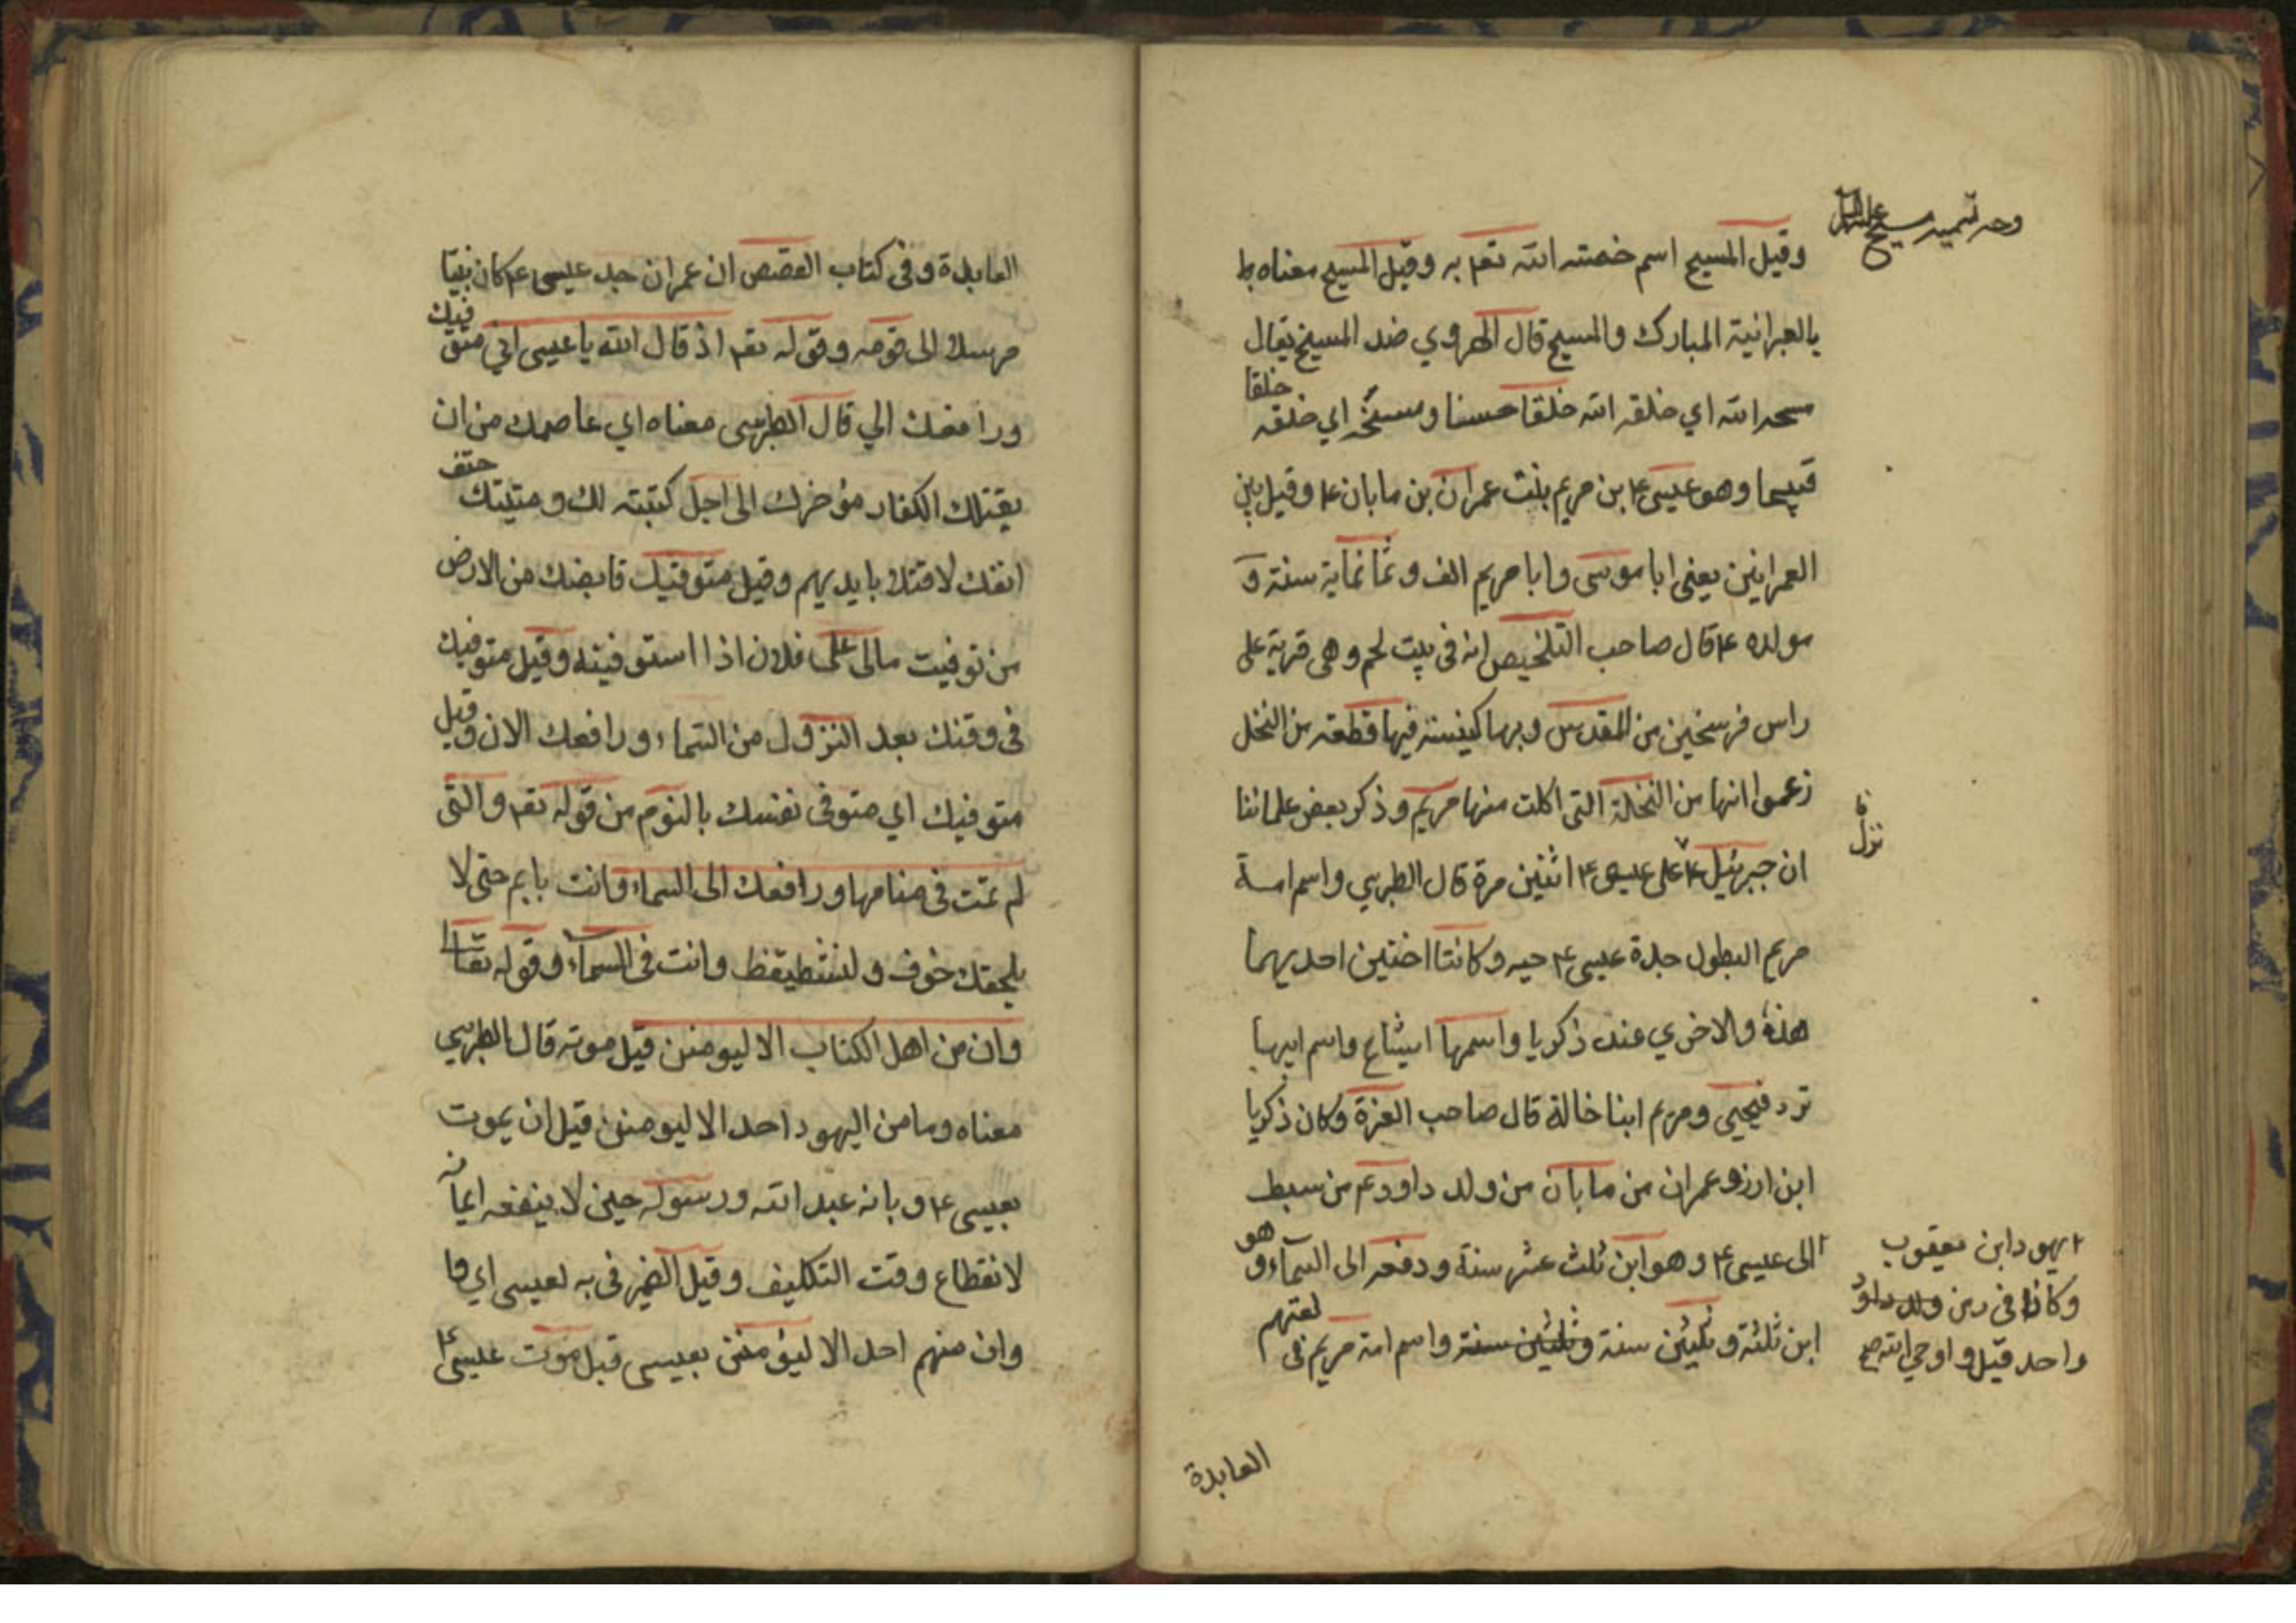 وجه تسمیه مسیح علیه السلام
وقيل المسيح اسم خصته الله تعم به وقيل المسيح معناه
بالعبرانية المبارك والمسيح قال الهروي ضد المسيخ يقال
مسحه الله اي خلقه الله خلقا حسنا ومسخه اي خلقه خلقا
قبيحا وهو عيسى ع بن مريم بنت عمران بن مابان ع وقيل بين
العمرانين يعنى ابا موسى وابا مريم الف وثمانماية سنة و
مولده ع قال صاحب التلخيص انه فى بيت لحم وهى قرية على
راس فرسخين من المقدس وبها كنيسة فيها قطعة من النخل
زعموا انها من النخلة التى اكلت منها مريم وذكر بعض علمائنا
ان جبرئيل ع على عيسى ع اثنين مرة قال الطبرسي واسم امة
نزل
مريم البطول جدة عيسى ع حيه وكانتا اختين احديهما
هذه والاخرى عند زكريا واسمها ايشاع واسم ابيها
فيحيى ومريم ابنا خالة قال صاحب الغرة وكان زكريا
ابن ازر وعمران من مابان من ولد داود ع من سبط
الى عيسى ع وهو ابن ثلث عشر سنة ودفعه الى السمآء وهو
ابن ثلثة وثلثين سنة وثلثين سنة واسم امة مريم فى لغتهم
يهود ابن يعقوب
وكانا فى من ولد داود
واحد قيل واوحى الله
العابدة
العابدة وفى كتاب القصص ان عمران جد عيسى ع كان نبيا
مرسلا الى قومه وقوله تعم اذ قال الله يا عيسى اني متوفيك
ورافعك الي قال الطبرسى معناه اي عاصمك من ان
يقتلك الكفار مؤخرك الى اجل كتبته لك ومتيتك حتف
انفك لا قتلا بايديهم وقيل متوفيك قابضك من الارض
من توفيت مالى على فلان اذا استوفيته وقيل متوفيك
فى وقتك بعد النزول من السماء ورافعك الان وقيل
متوفيك اي متوفى نفسك بالنوم من قوله تعم والتى
لم تمت فى منامها ورافعك الى السماء وانت نايم حتى لا
يلحقك خوف و وانت فى السمآء وقوله تعالى
وان من اهل الكتاب الا ليومنن قبل موته قال الطبرسي
معناه وما من اليهود احد الا ليومنن قبل ان يموت
بعيسى ع وبانه عبد الله ورسوله حين لا ينفعه ايمانه
لانقطاع وقت التكليف وقيل الضمير فى به لعيسى اي وما
وان منهم احد الا ليؤمنن بعيسى قبل موت عيسى ع